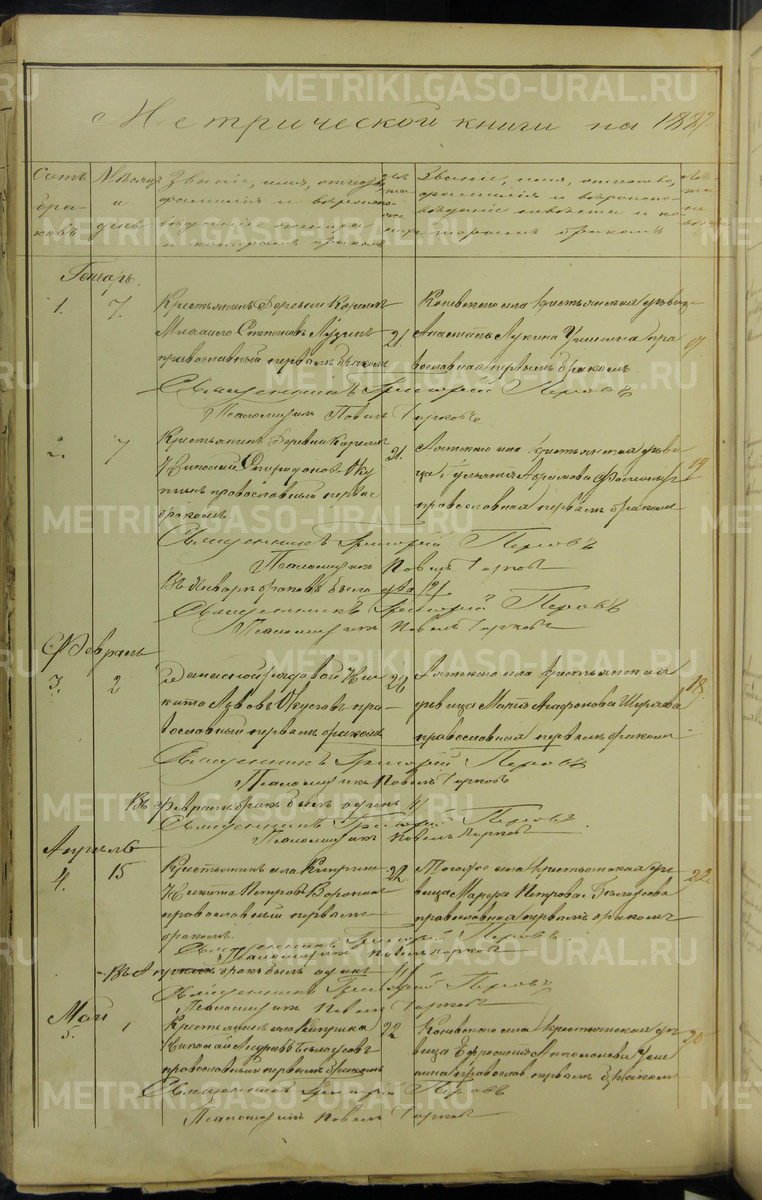 METRIKI.GASO-URAL.RU
Метрической книги на 1887.
Счетъ браковъ
Мѣсяцъ и день
Званіе, имя, отчество, фамилія и вѣроисповѣданіе жениха и которымъ бракомъ
Званіе, имя, отчество, фамилія и вѣроисповѣданіе невѣсты и которымъ бракомъ
Генварь.
1. 7. Крестьянинъ деревни Корелъ
православный первымъ бракомъ 21.
Коневского села крестьянская дѣвица
Анастасія Лукина пра
вославная первымъ бракомъ 19
Священникъ Григорій Перовъ
Псаломщикъ Павелъ Горковъ
2. 7 Крестьянинъ деревни Корелъ
Николай Спиридоновъ Оку
православный первымъ
бракомъ. 21.
Аятского села крестьянская дѣви
ца Ульянія Абрамова
православная первымъ бракомъ 19
Священникъ Григорій Перовъ
Псаломщикъ Павелъ Горковъ
Въ Январѣ браковъ было два /2/
Священникъ Григорій Перовъ
Псаломщикъ Павелъ Горковъ
Февраль
3. 2 Запасной рядовой Ни
кита Львовъ пра
вославный первымъ бракомъ 26
Аятского села крестьянская
дѣвица Агафонова
православная первымъ бракомъ 18.
Священникъ Григорій Перовъ
Псаломщикъ Павелъ Горковъ
Въ Февралѣ бракъ былъ одинъ /1/
Священникъ Григорій Перовъ.
Псаломщикъ Павелъ Горковъ
Апрѣль
4. 15 Крестьянинъ села Киприн
Никита Петровъ Воронинъ
православный первымъ
бракомъ. 22
села крестьянская дѣ
вица Петрова Бѣлоусова
православная первымъ бракомъ 22
Священникъ Григорій Перовъ.
Псаломщикъ Павелъ Горковъ
Въ Апрѣлѣ бракъ былъ одинъ /1/
Священникъ Григорій Перовъ
Псаломщикъ Павелъ Горковъ
Май
5. 1 Крестьянинъ села Киприна
Николай Бѣлоусовъ
православный первымъ бракомъ 22
Коневского села крестьянская дѣ
вица
православ первымъ бракомъ 20
Священникъ Григорій Перовъ
Псаломщикъ Павелъ Горковъ